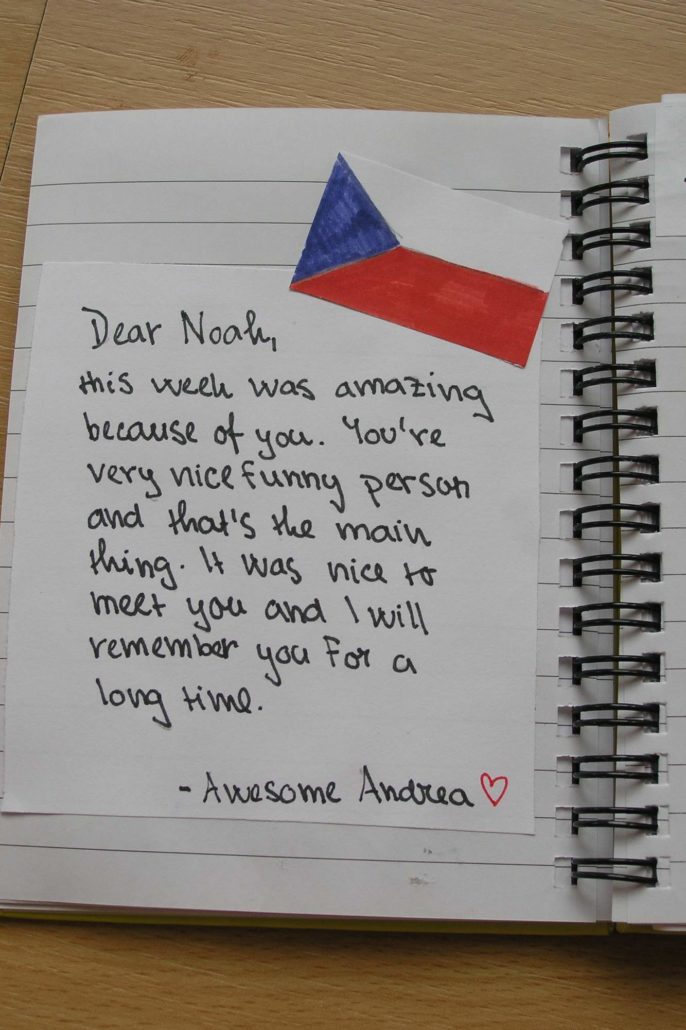 Dear Noah,
this week was amazing
because of you. You're
very nice funny person
and that's the main
thing. It was nice to
meet you and I will
remember you for a
long time.
- Awesome Andrea